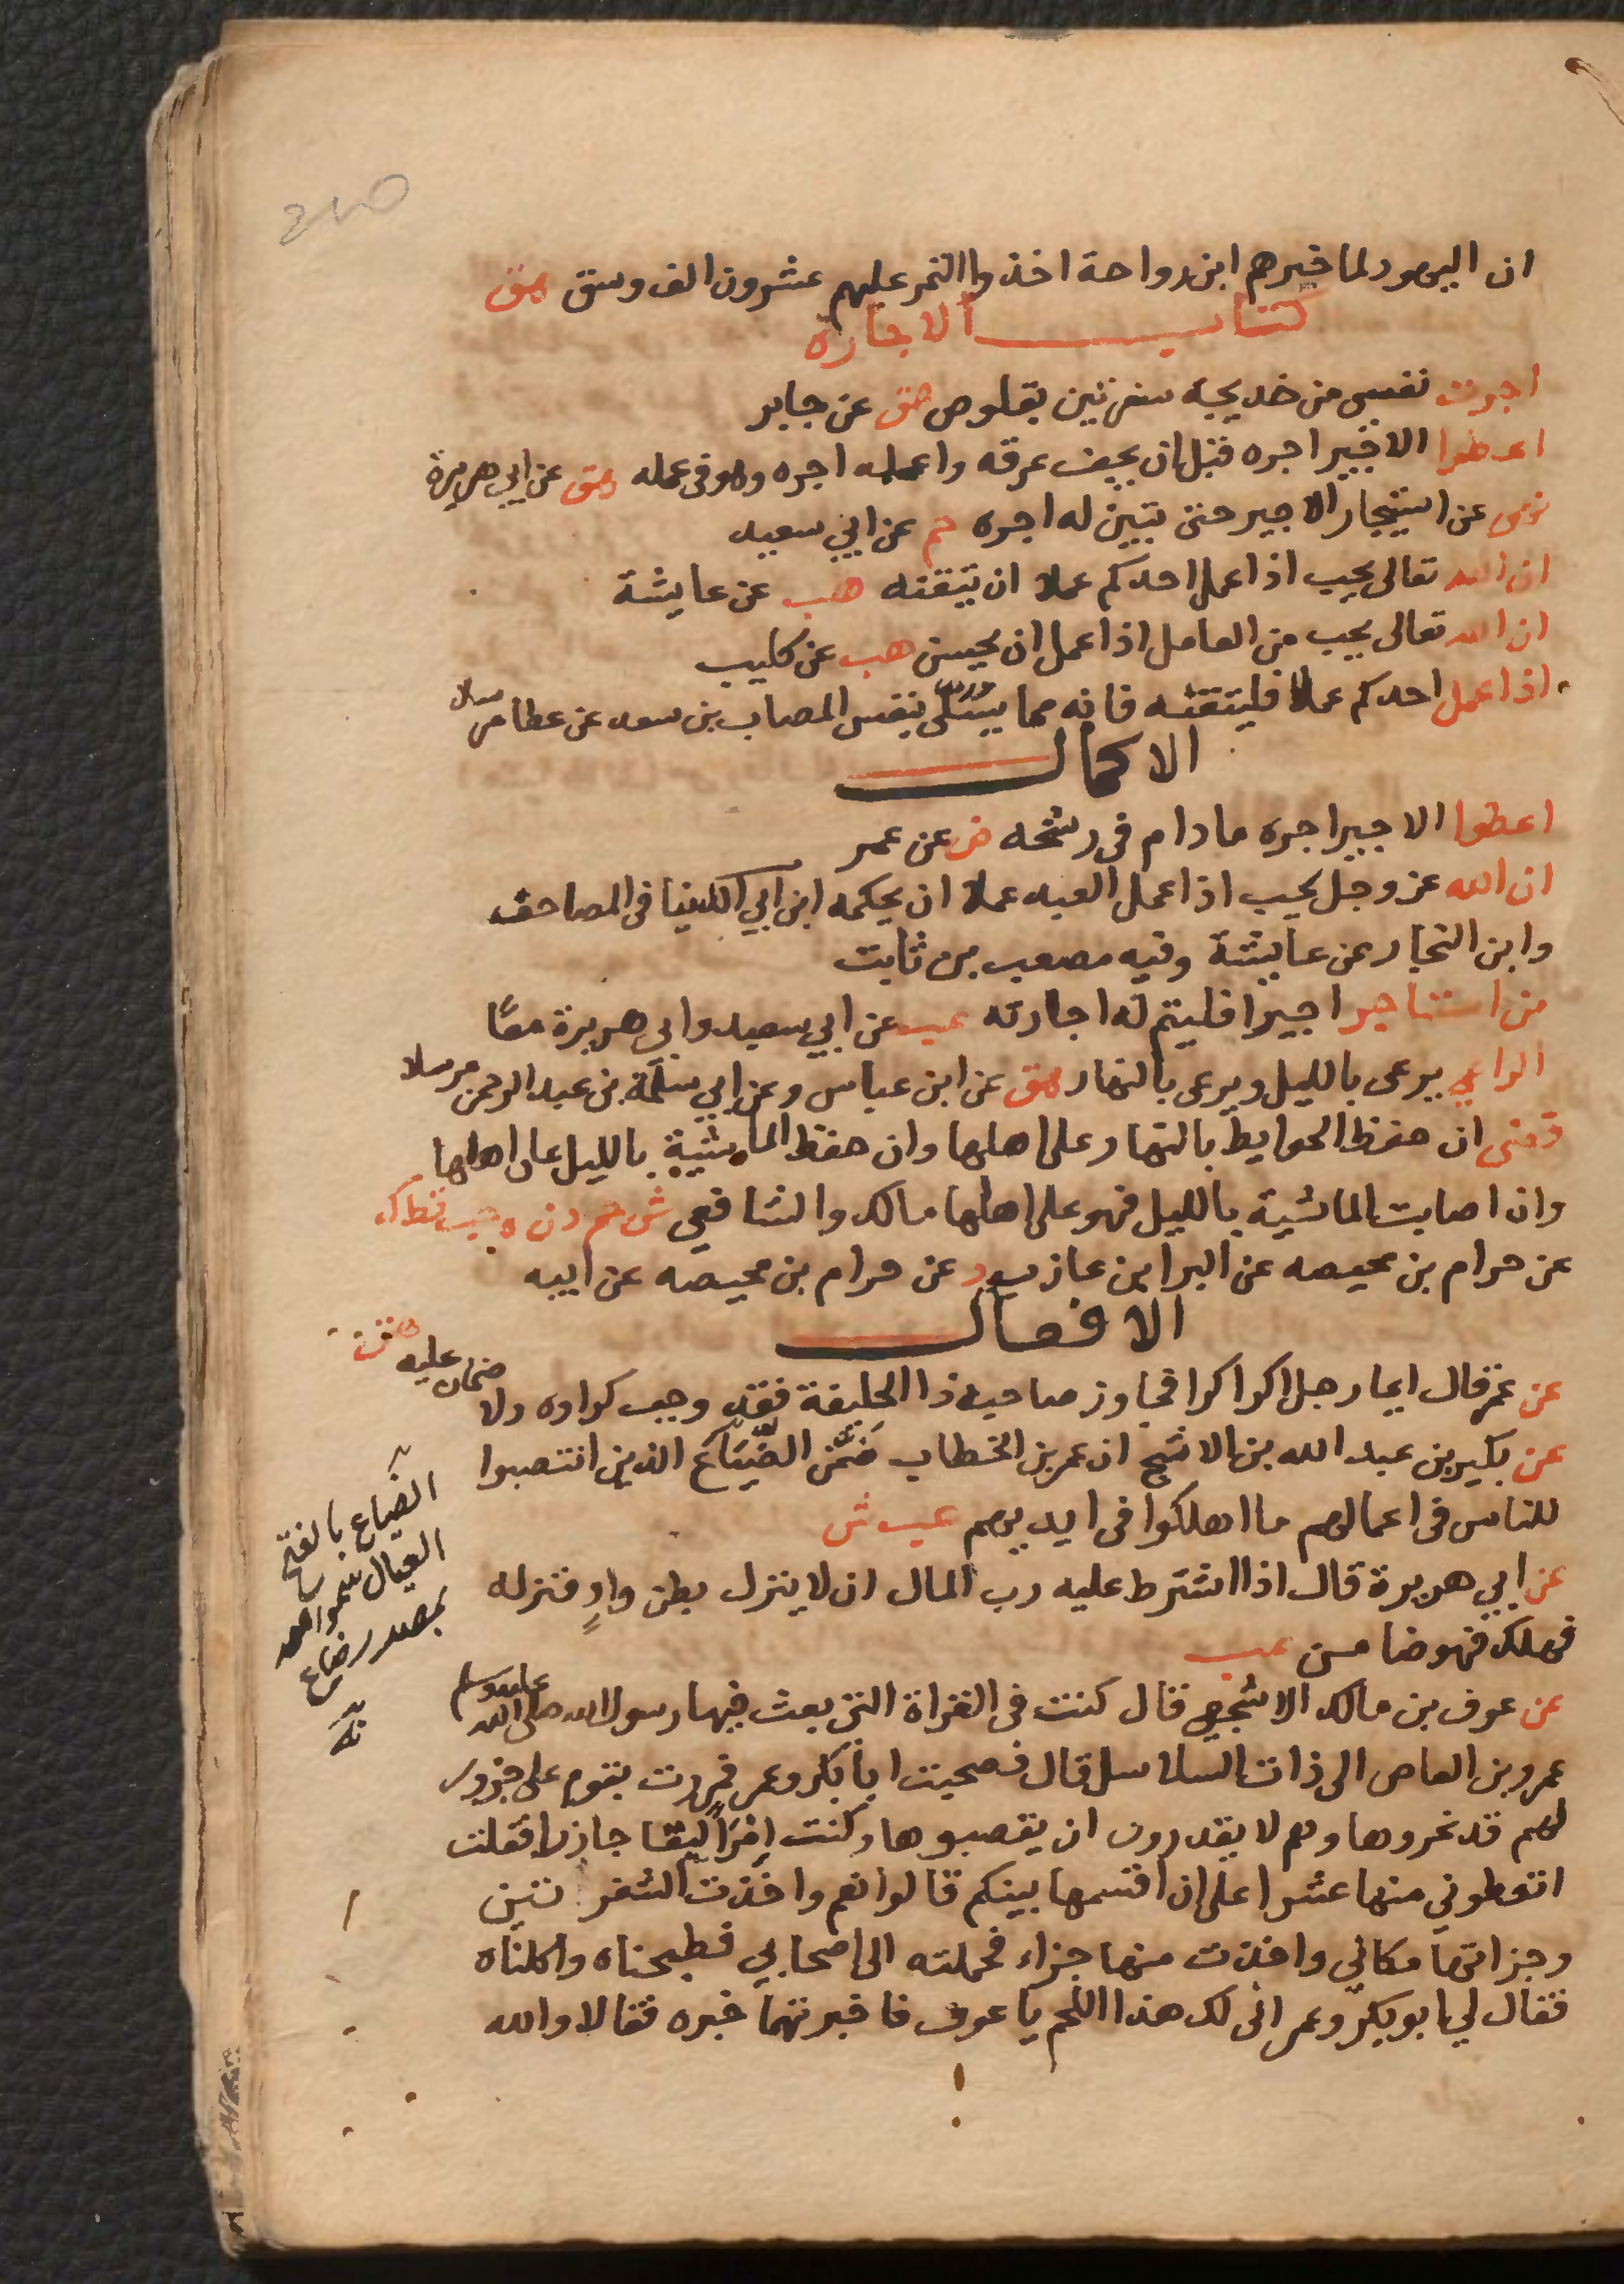 ان اليهود لما خيرهم ابن رواحة اخذوا التمر عليهم عشرون الف وسق هق
كتاب الاجارة
اجرت نفسى من خديجه سفرتين بقلوص هق عن جابر
اعطوا الاجير اجره قبل ان يجف عرقه واعلمه اجره وهو فى عمله هق عن ابي هريرة
نهى عن استيجار الاجير حتى يتبين له اجره حم عن ابي سعيد
ان الله تعالى يحب اذا عمل احدكم عملا ان يتقنه هب عن عايشة
ان الله تعالى يحب من العامل اذا عمل ان يحسن هب عن كليب
اذا عمل احدكم عملا فليتقنه فانه مما يسلى بنفس المصاب بن سعد عن عطا مرسلا
الاكمال
اعطوا الاجير اجره مادام فى رشحه ض عن عمر
ان الله عز وجل يحب اذا عمل العبد عملا ان يحكمه ابن ابي الدنيا فى المصاحف
وابن النجار عن عايشة وفيه مصعب بن ثابت
من استاجر اجيرا فليتم له اجارته عب عن ابي سعيد وابي هريرة معا
الراعي يرعى بالليل ويرعى بالنهار هق عن ابن عباس وعن ابي سلمة بن عبد الرحمن مرسلا
قضى ان حفظ الحوايط بالنهار على اهلها وان حفظ الماشية بالليل على اهلها
وان اصابت الماشية بالليل فهو على اهلها مالك والشافعي ش حم د ن ه حب قط ك
عن حرام بن محيصه عن البرا بن عازب د عن حرام بن محيصه عن ابيه
الافعال
عن عمر قال ايما رجل اكرا كرا فجاوز صاحبه ذا الحليفة فقد وجب كراوه ولا ضمان عليه هق
عن بكير بن عبد الله بن الاشج ان عمر بن الخطاب ضمّن الضّيّاع الذين انتصبوا
للناس فى اعمالهم ما اهلكوا فى ايديهم عب ش
عن ابي هريرة قال اذا اشترط عليه رب المال ان لا ينزل بطن وادٍ فنزله
فهلك فهو ضامن عب
عن عوف بن مالك الاشجعي قال كنت فى الغزاة التى بعث فيها رسول الله صلى الله عليه وسلم
عمرو بن العاص الى ذات السلاسل قال فصحبت ابا بكر وعمر فمررت بقوم على جزور
لهم قد نحروها وهم لا يقدرون ان يقصبوها وكنت امرًا لبقا جازرا فقلت
اتعطوني منها عشرا على ان اقسمها بينكم قالوا نعم واخذت الشفرتين
وجزاتها مكاني واخذت منها جزاء فحملته الى اصحابي فطبخناه واكلناه
فقال لي ابو بكر وعمر انى لك هذا اللحم يا عوف فاخبرتهما خبره فقالا والله
الضياع بالفتح
العيال
بمصدر ضاع